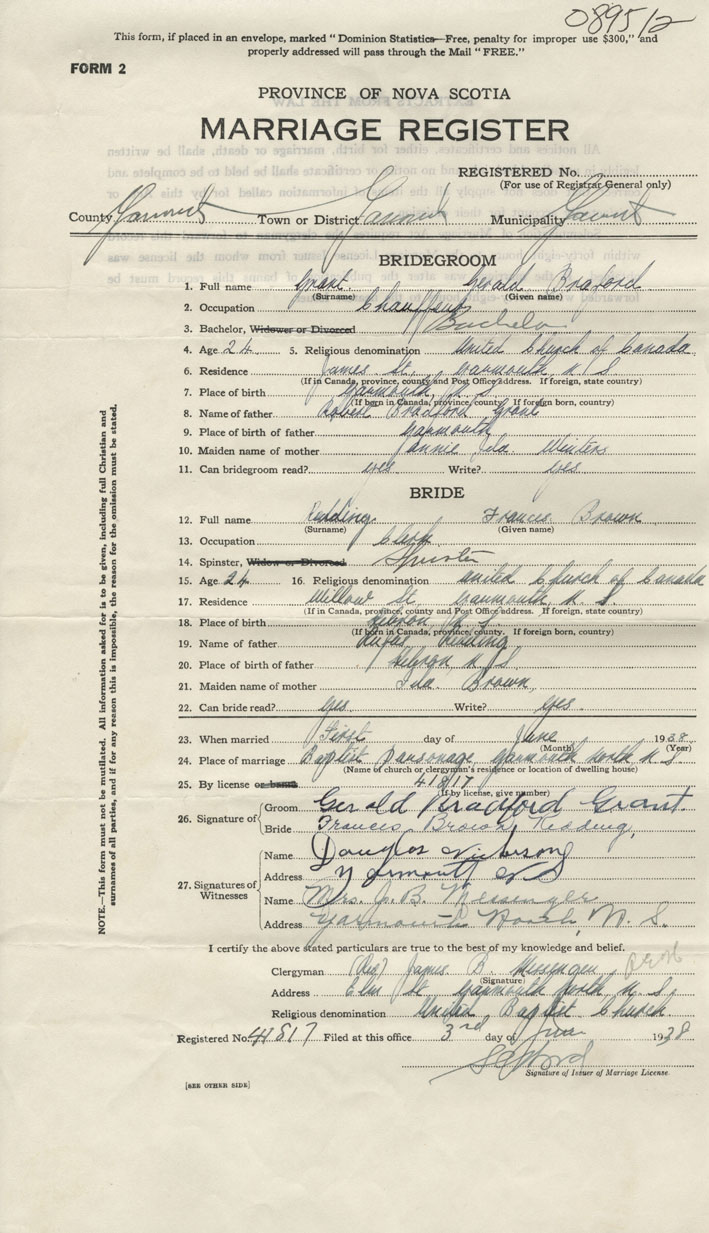 089512
This form, if placed in an envelope, marked " Dominion Statistics—Free, penalty for improper use $300," and
properly addressed will pass through the Mail "FREE."
FORM 2
PROVINCE OF NOVA SCOTIA
MARRIAGE REGISTER
REGISTERED No.
(For use of Registrar General only)
County Yarmouth Town or District Yarmouth Municipality Yarmouth
BRIDEGROOM
1. Full name Grant Gerald Bradford
(Surname) (Given name)
2. Occupation Chauffeur
3. Bachelor, Widower or Divorced Bachelor
4. Age 24 5. Religious denomination United Church of Canada
6. Residence James St. Yarmouth, N S
(If in Canada, province, county and Post Office address. If foreign, state country)
7. Place of birth Yarmouth N. S.
(If born in Canada, province, county. If foreign born, country)
8. Name of father Robert Bradford Grant
9. Place of birth of father Yarmouth
10. Maiden name of mother Annie Ida Winters
11. Can bridegroom read? yes Write? yes
BRIDE
12. Full name Redding Frances Brown
(Surname) (Given name)
13. Occupation Clerk
14. Spinster, Widow or Divorced Spinster
15. Age 24 16. Religious denomination United Church of Canada
17. Residence Willow St Yarmouth, N. S.
(If in Canada, province, county and Post Office address. If foreign, state country)
18. Place of birth N. S.
(If born in Canada, province, county. If foreign born, country)
19. Name of father Rufus Redding
20. Place of birth of father Hebron N S
21. Maiden name of mother Ida Brown
22. Can bride read? yes. Write? yes.
23. When married First day of June 1938
(Month) (Year)
24. Place of marriage Baptist parsonage Yarmouth North N S
(Name of church or clergyman's residence or location of dwelling house)
25. By license or banns 41817
(If by license, give number)
26. Signature of Groom Gerald Bradford Grant
Bride Frances Brown Redding
27. Signatures of Witnesses Name Douglas Nickerson
Address Yarmouth N S
Name Mrs. J. B. Messenger
Address Yarmouth North, N. S.
I certify the above stated particulars are true to the best of my knowledge and belief.
Clergyman (Rev) James B. Messenger
(Signature)
Address Elm St Yarmouth North N. S.
Religious denomination United Baptist Church
Registered No. 41817 Filed at this office 3rd day of June 1938
Signature of Issuer of Marriage License
[SEE OTHER SIDE]
NOTE.—This form must not be mutilated. All information asked for is to be given, including full Christian and
surnames of all parties, and if for any reason this is impossible, the reason for the omission must be stated.